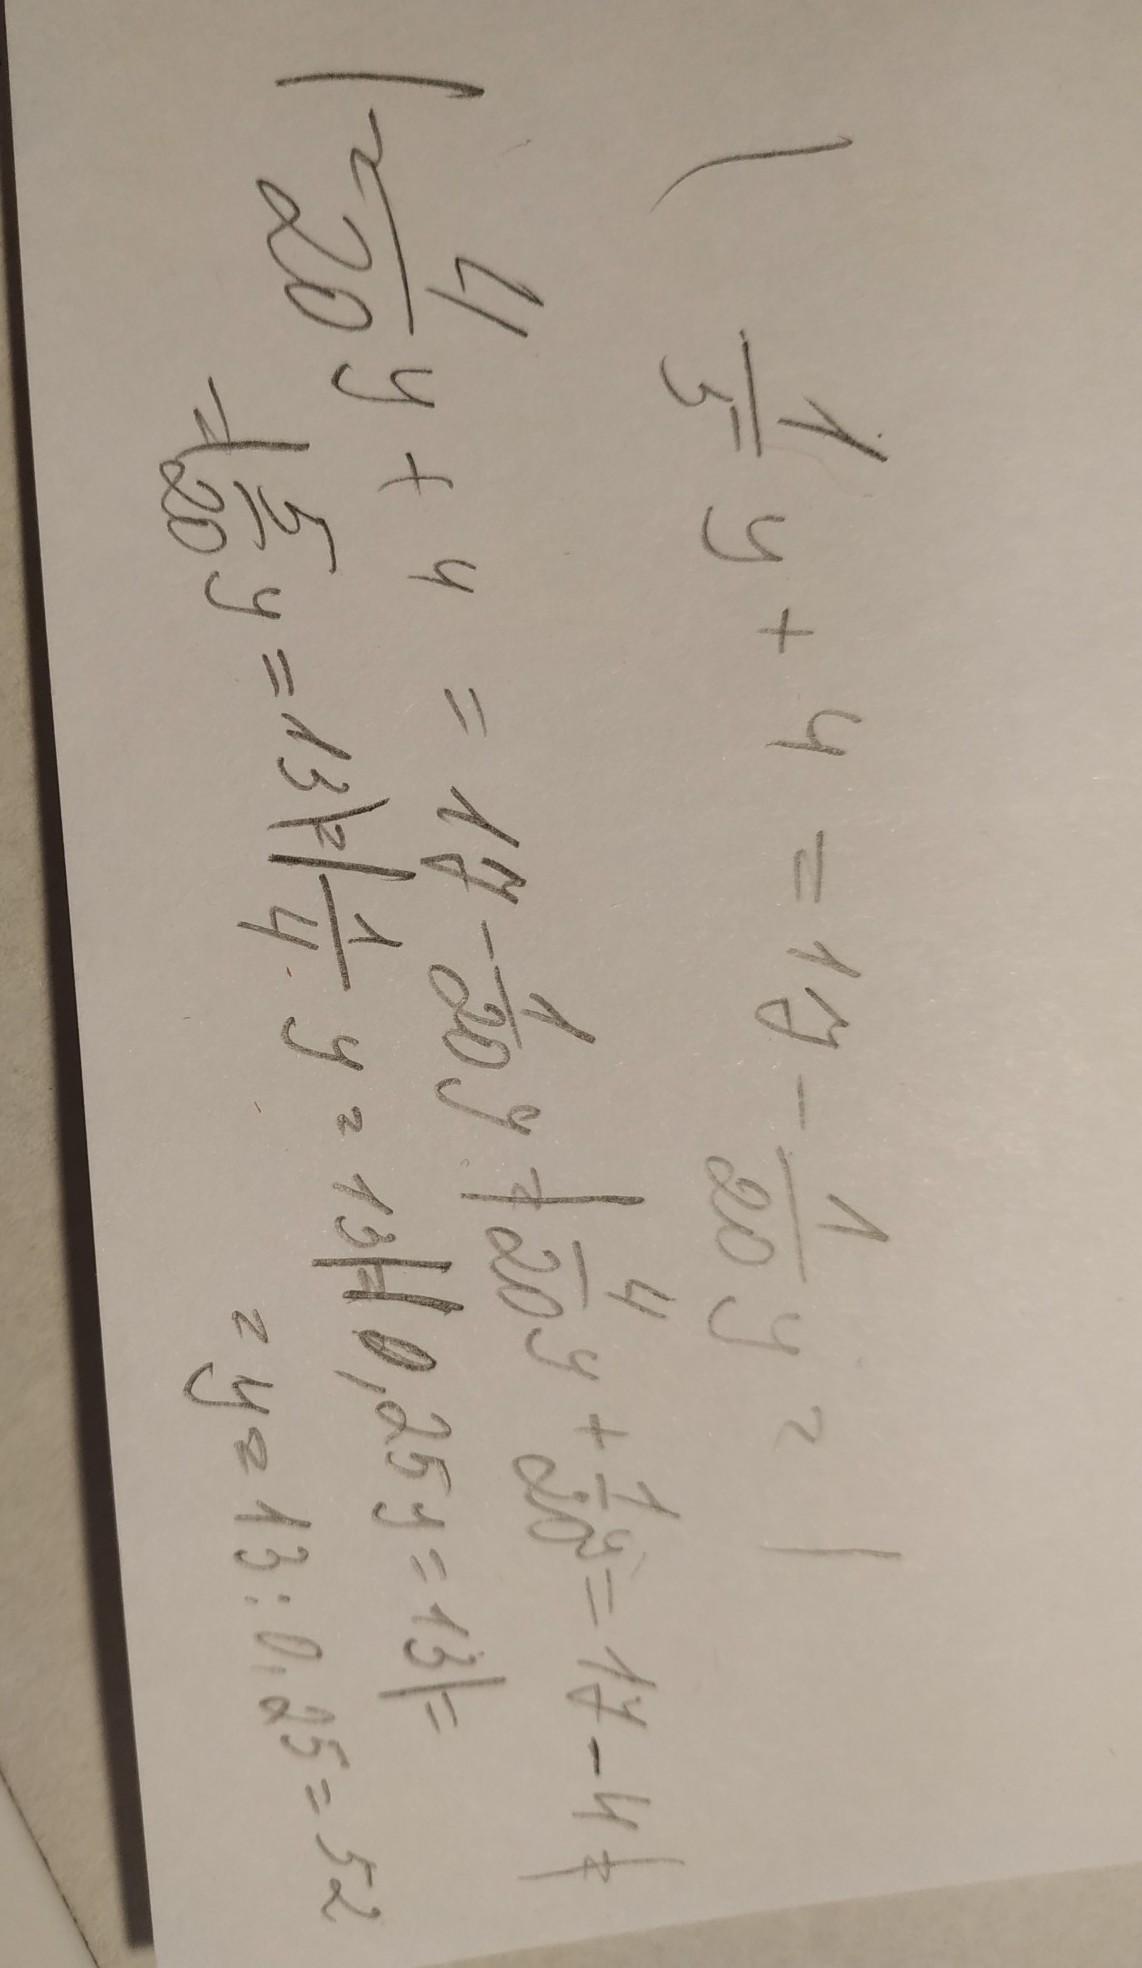 | 1/5 y + 4 = 17 - 1/20 y = |
| = 4/20 y + 4 = 17 - 1/20 y = | 4/20 y + 1/20 y = 17 - 4 = |
= | 5/20 y = 13 | = | 1/4 y = 13 | = | 0,25 y = 13 | =
= y = 13 : 0,25 = 52